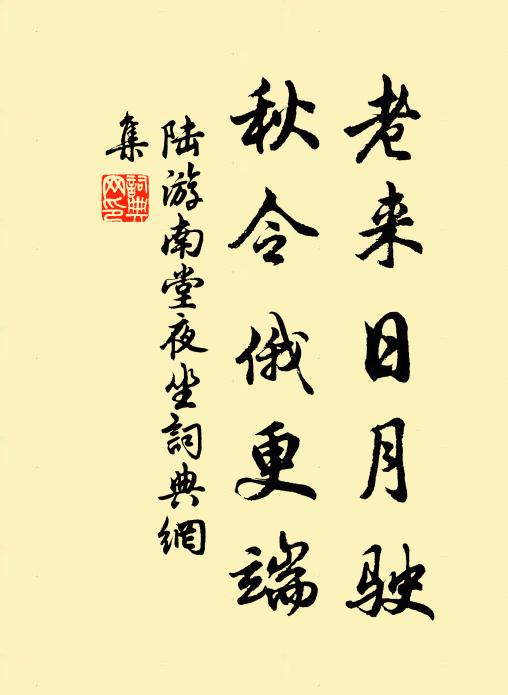 老来日月駛
秋令俄更端
陆游南堂夜坐詞典網
集
詞典
网印